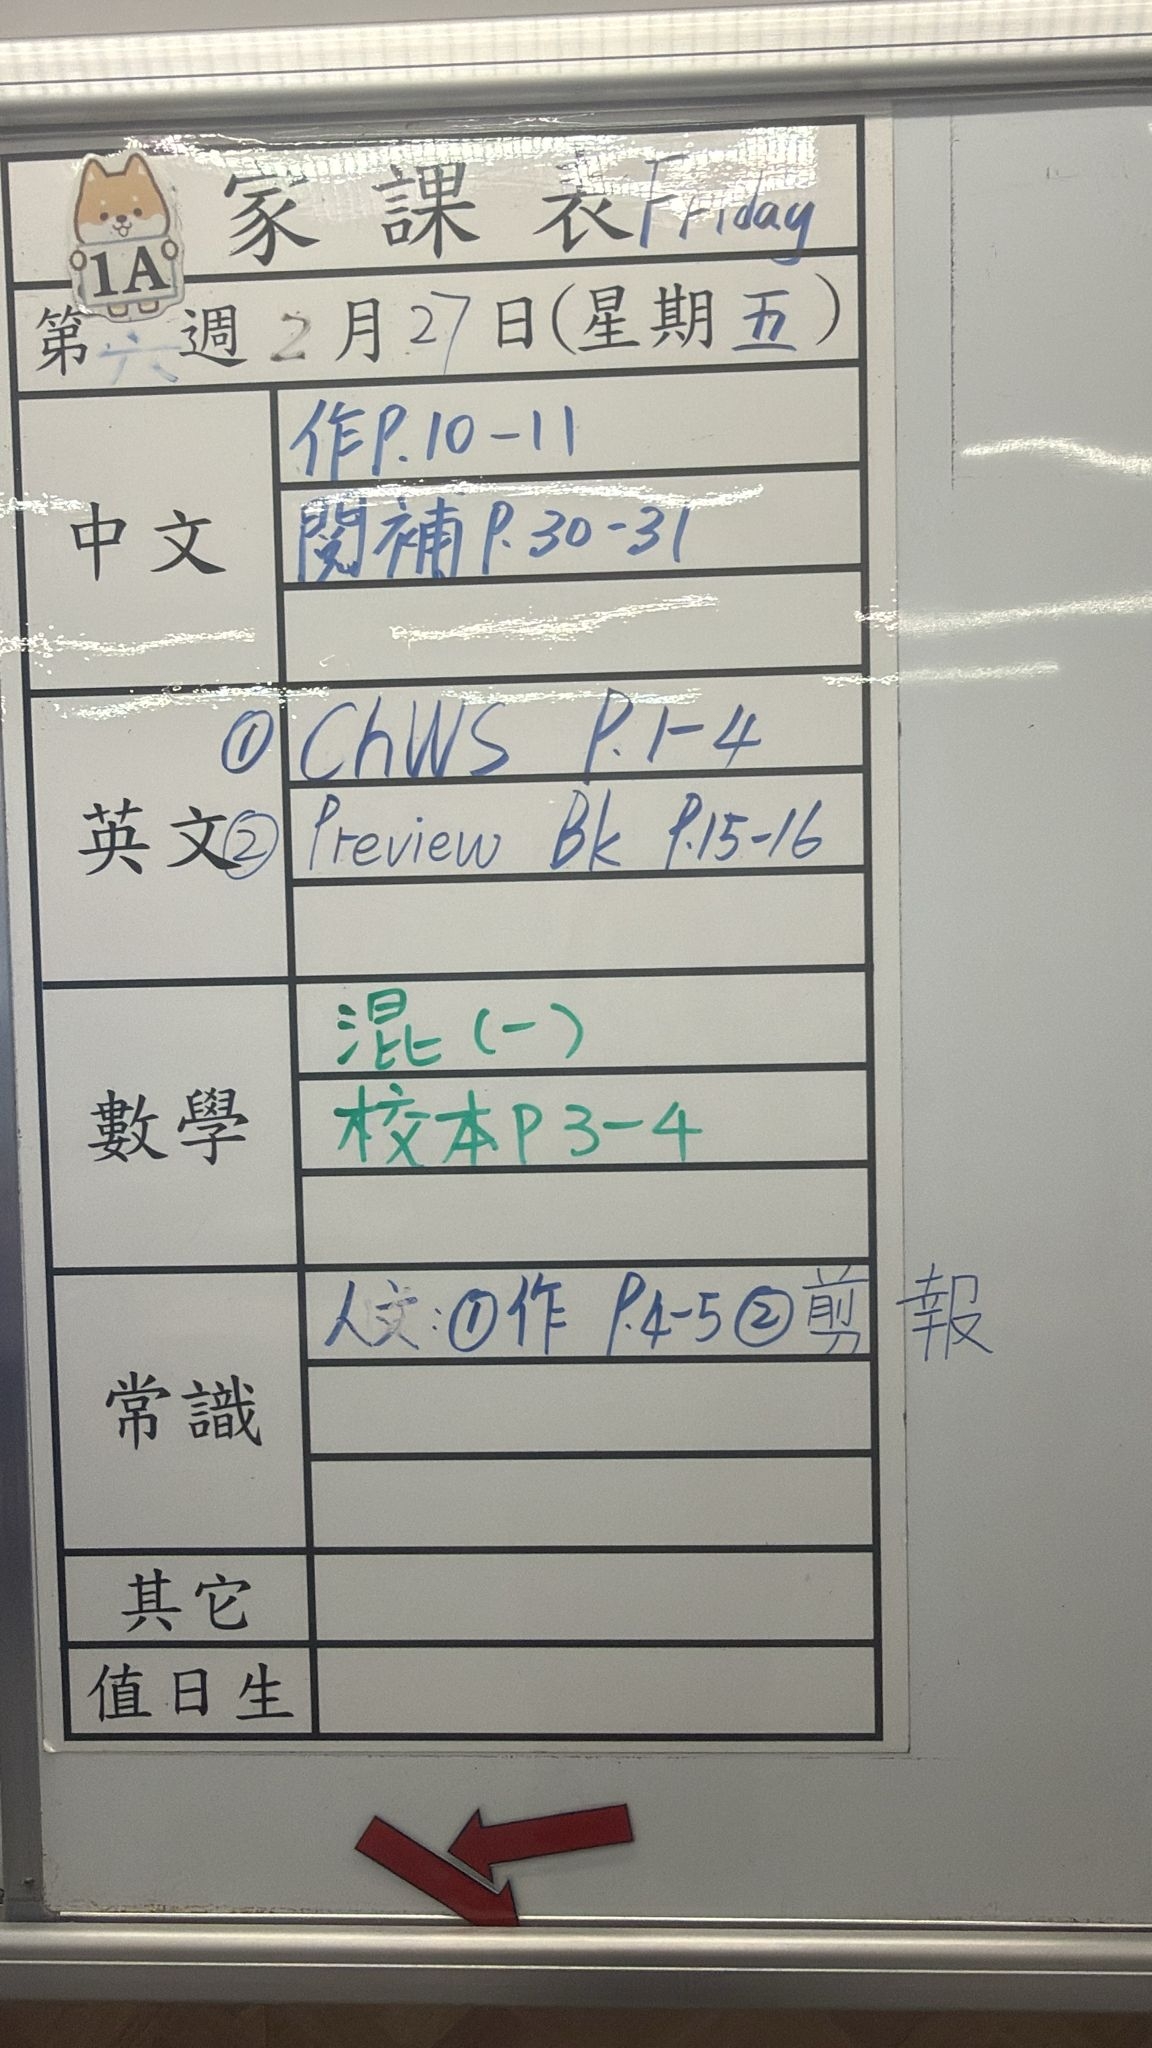 1A
家課表 Friday
第六週2月27日(星期五)
中文
作P.10-11
閱補P.30-31
英文
① ChWS P.1-4
② Preview Bk P.15-16
數學
混(一)
校本P3-4
常識
人文:①作 P.4-5②剪報
其它
值日生